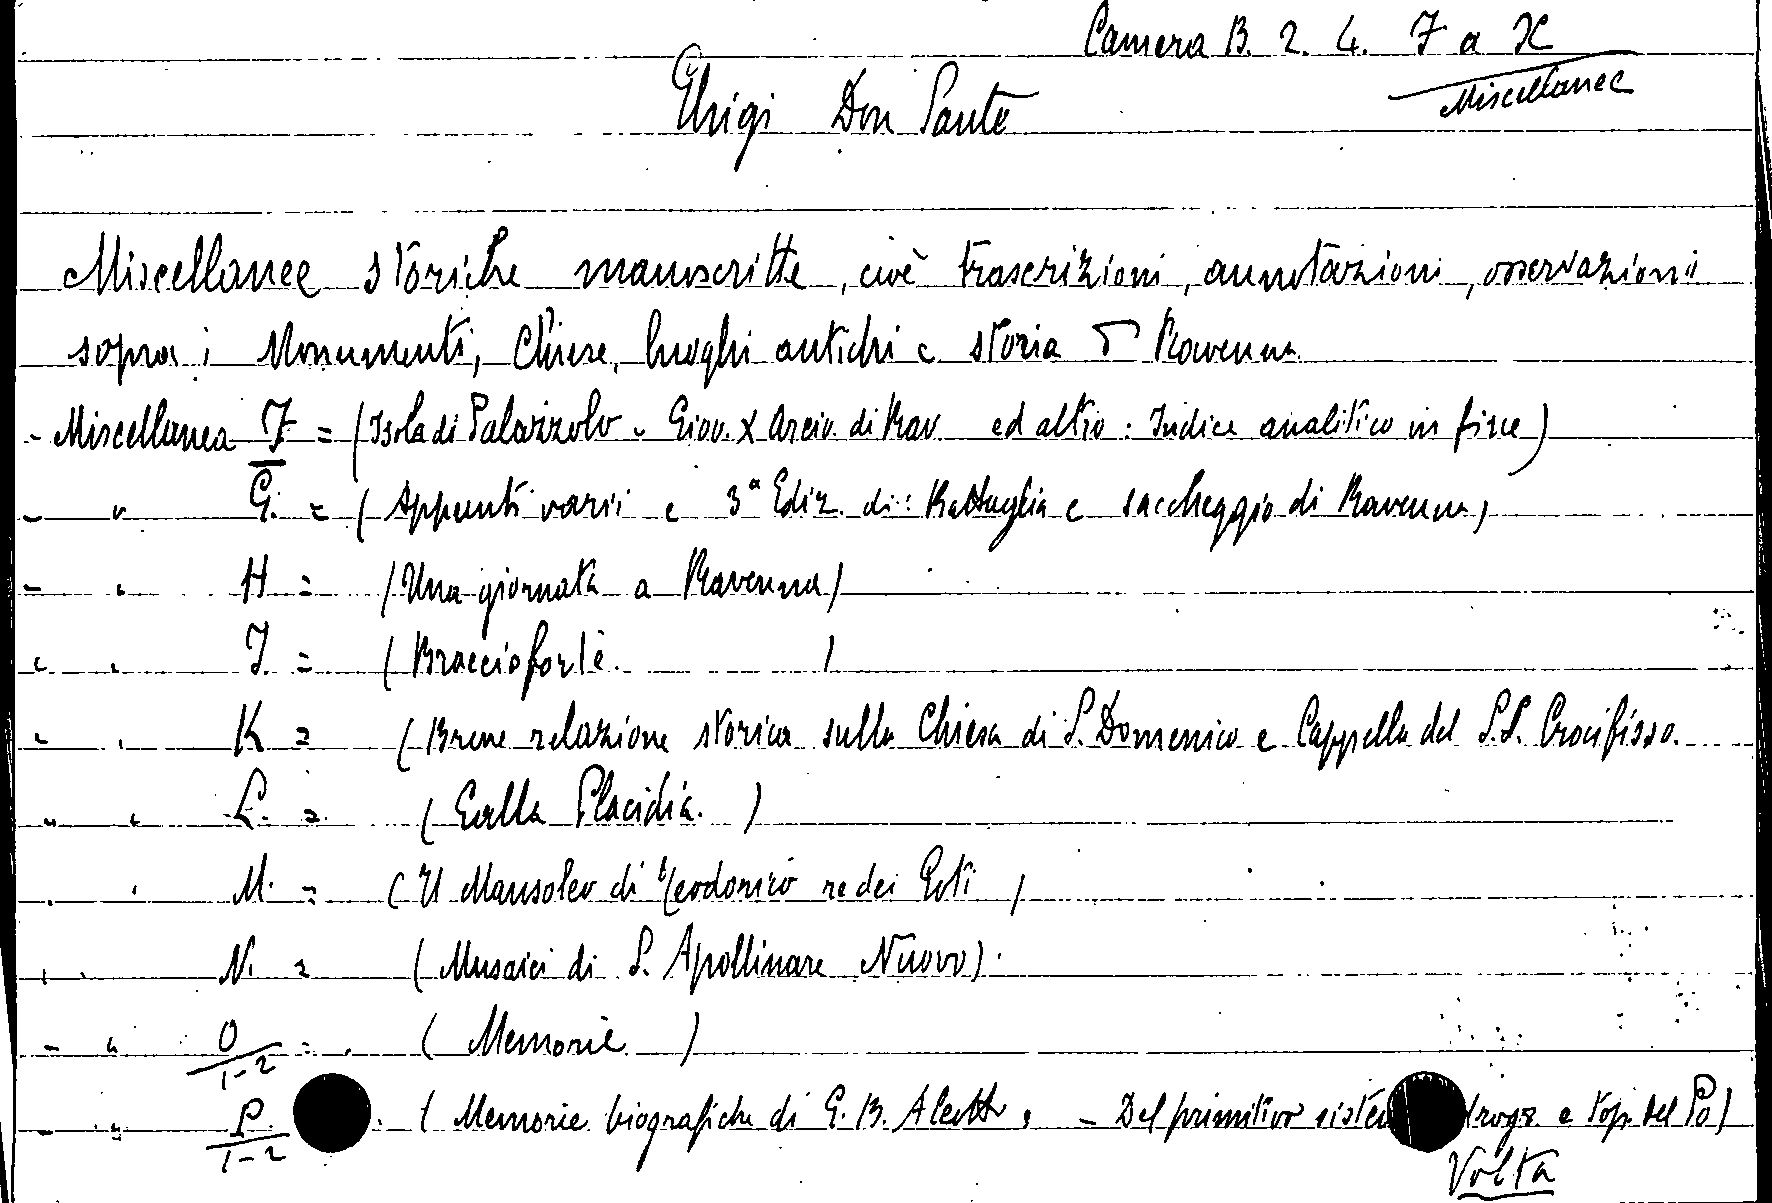 Camera B. 2. 4. F a X
Miscellanee
Ghigi Don Sante
Miscellanee storiche manoscritte, cioè trascrizioni, annotazioni, osservazioni
sopra i Monumenti, Chiese, luoghi antichi e storia di Ravenna
- Miscellanea F = (Isola di Palazzolo - Giov. X Arciv. di Rav. ed altro : Indice analitico in fine)
- " G. = (Appunti varii e 3ª Ediz. di : Battaglia e saccheggio di Ravenna)
- " H = (Una giornata a Ravenna)
" " I. = (Braccioforte. )
" " K = (Breve relazione storica sulla Chiesa di S. Domenico e Cappella del S.S. Crocifisso.
" " L. = (Galla Placidia. )
" " M. = (Il Mausoleo di Teodorico re dei Goti )
" " N. = (Musaici di S. Apollinare Nuovo).
- " O/1-2 = (Memorie )
- " P./1-2 (Memorie biografiche di G. B. Aleotti. - Del primitivo idrogr. e top. del Po)
Volta